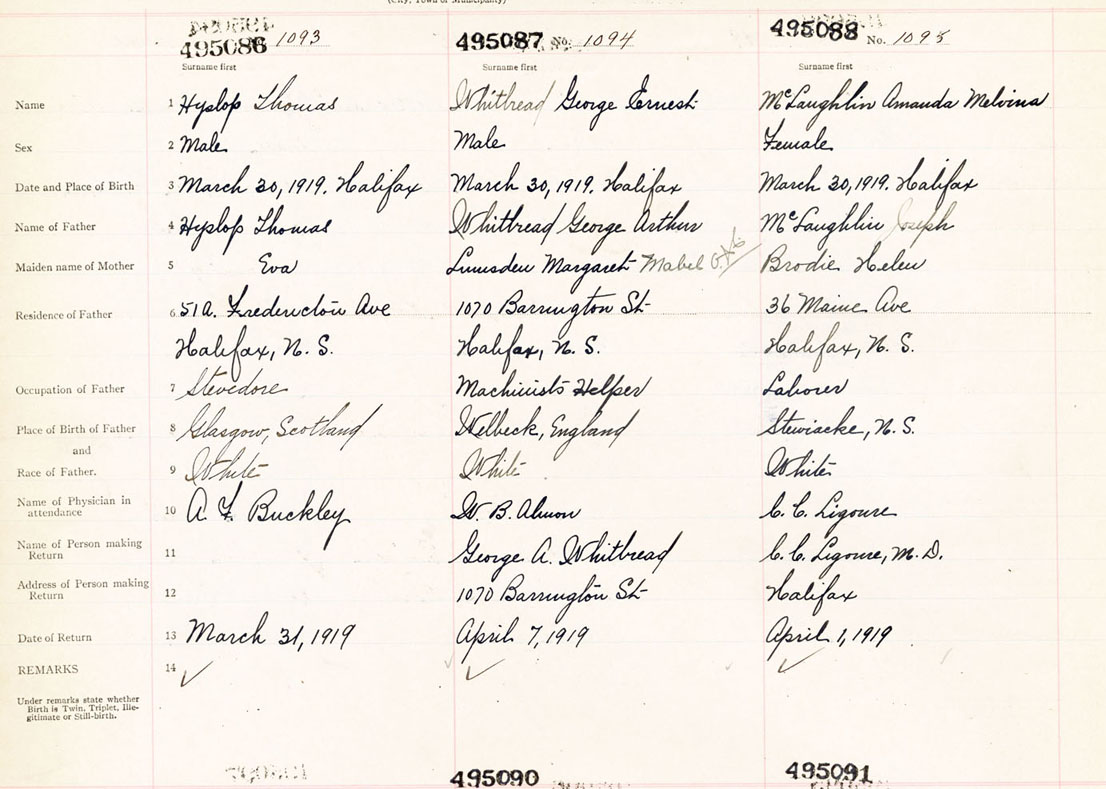 (City, Town or Municipality)
495086 1093
495087 No. 1094
495088 No. 1095
Surname first Surname first Surname first
Name 1 Hyslop Thomas Whitbread George Ernest McLaughlin Amanda Melvina
Sex 2 Male Male Female
Date and Place of Birth 3 March 30, 1919. Halifax March 30, 1919. Halifax March 30, 1919. Halifax
Name of Father 4 Hyslop Thomas Whitbread George Arthur McLaughlin Joseph
Maiden name of Mother 5 Eva Lumsden Margaret Mabel Brodie Helen
Residence of Father 6 51a. Fredericton Ave 1070 Barrington St 36 Maine Ave
Halifax, N. S. Halifax, N. S. Halifax, N. S.
Occupation of Father 7 Stevedore Machinists Helper Laborer
Place of Birth of Father 8 Glasgow, Scotland Welbeck, England Stewiacke, N. S.
and
Race of Father. 9 White White White
Name of Physician in
attendance 10 A. F. Buckley W. B. Almon C. C. Ligoure
Name of Person making
Return 11 George A. Whitbread C. C. Ligoure, M. D.
Address of Person making
Return 12 1070 Barrington St Halifax
Date of Return 13 March 31, 1919 April 7, 1919 April 1, 1919
REMARKS 14
Under remarks state whether
Birth is Twin, Triplet, Ille-
gitimate or Still-birth.
495090 495091